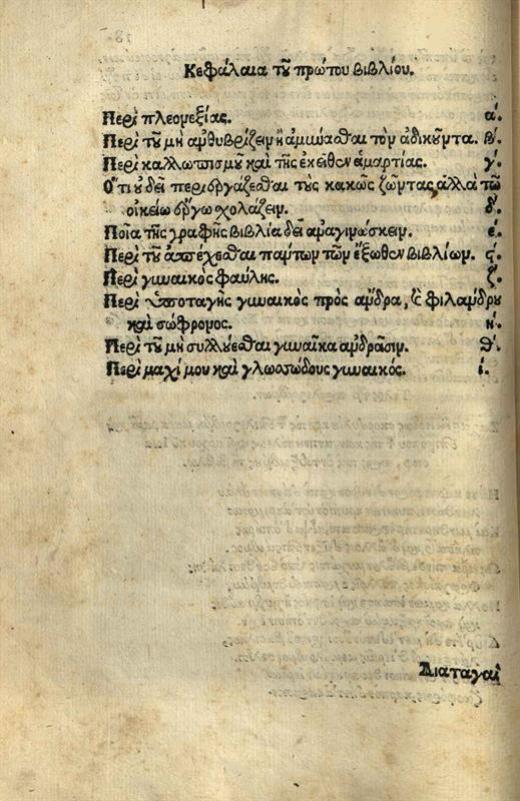 Κεφάλαια τοῦ πρώτου βιβλίου.
Περὶ πλεονεξίας. α΄.
Περὶ τοῦ μὴ ἀνθυβρίζειν ἢ ἀμύνασθαι τὸν ἀδικοῦντα. β΄.
Περὶ καλλωπισμοῦ καὶ τῆς ἐκεῖθεν ἁμαρτίας. γ΄.
Ὅτι οὐ δεῖ περιεργάζεσθαι τοὺς κακῶς ζῶντας, ἀλλὰ τῷ
οἰκείῳ ἔργῳ σχολάζειν. δ΄.
Ποῖα τῆς γραφῆς βιβλία δεῖ ἀναγινώσκειν. ε΄.
Περὶ τοῦ ἀπέχεσθαι πάντων τῶν ἔξωθεν βιβλίων. ϛ΄.
Περὶ γυναικὸς φαύλης. ζ΄.
Περὶ ὑποταγῆς γυναικὸς πρὸς ἄνδρα, καὶ φιλάνδρου
καὶ σώφρονος. η΄.
Περὶ τοῦ μὴ συλλούεσθαι γυναῖκα ἀνδράσιν. θ΄.
Περὶ μαχίμου καὶ γλωσσώδους γυναικός. ι΄.
Διαταγαὶ